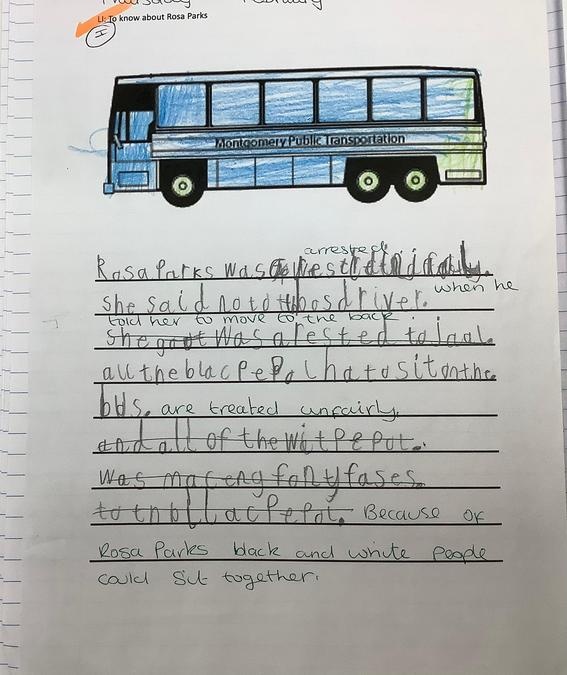 Thursday February
LI: To know about Rosa Parks
I
Montgomery Public Transportation
arrested
Rosa Parks was
when he
she said no to the bos driver.
told her to move to the back.
She got was arested to jaal.
all the blac PePol ha to sit on the
bus. are treated unfairly.
and all of the wit PePol.
was maceng fony fases
to the bllac PePol. Because of
Rosa Parks black and white people
could sit together.